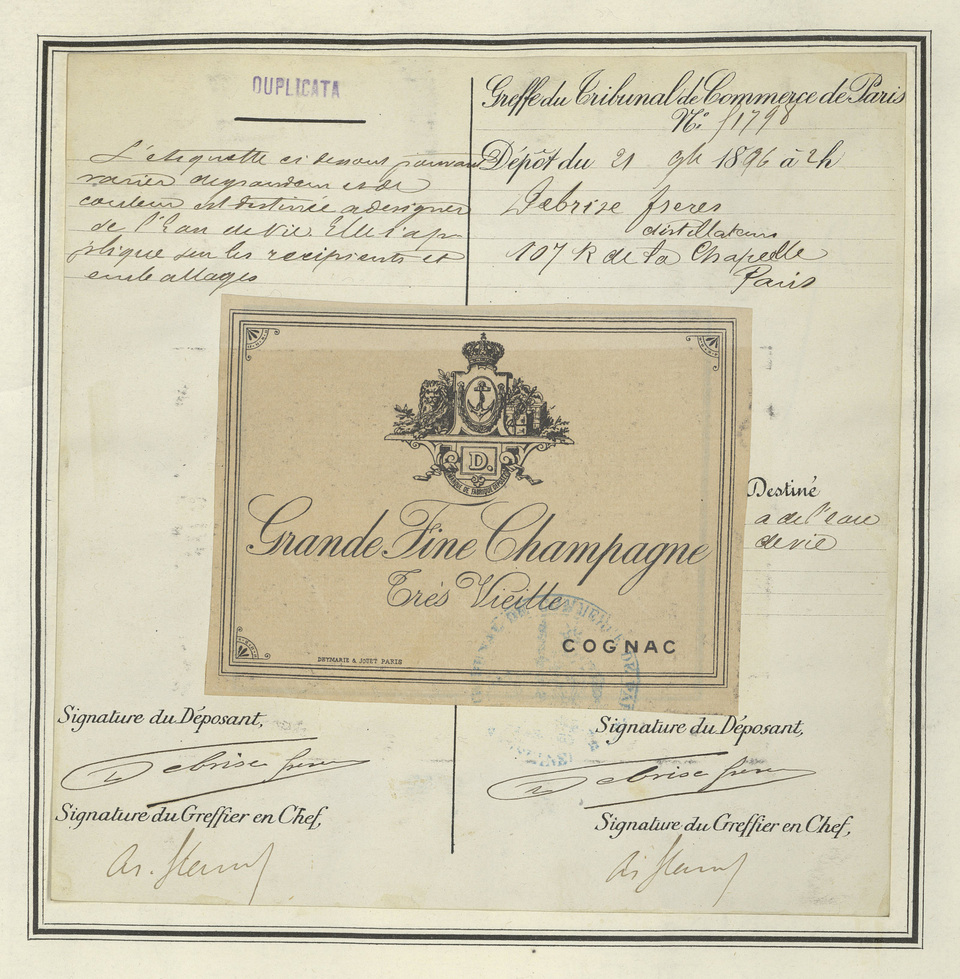 DUPLICATA
L'étiquette ci dessous pouvant
varier de grandeur et de
couleur est destinée a designer
de l'Eau de Vie. Elle s'ap
plique sur les recipients et
emballages
Greffe du Tribunal de Commerce de Paris
N°
Dépôt du 21 9bre 1896 à 2h
Debrise freres
distillateurs
107 R de la Chapelle
Paris
D.
MARQUE DE FABRIQUE DÉPOSÉE
Grande Fine Champagne
Très Vieille
COGNAC
DEYMARIE & JOUET PARIS
Destiné
a de l'eau
de vie
Signature du Déposant,
Debrise freres
Signature du Greffier en Chef,
Signature du Déposant,
Debrise freres
Signature du Greffier en Chef,